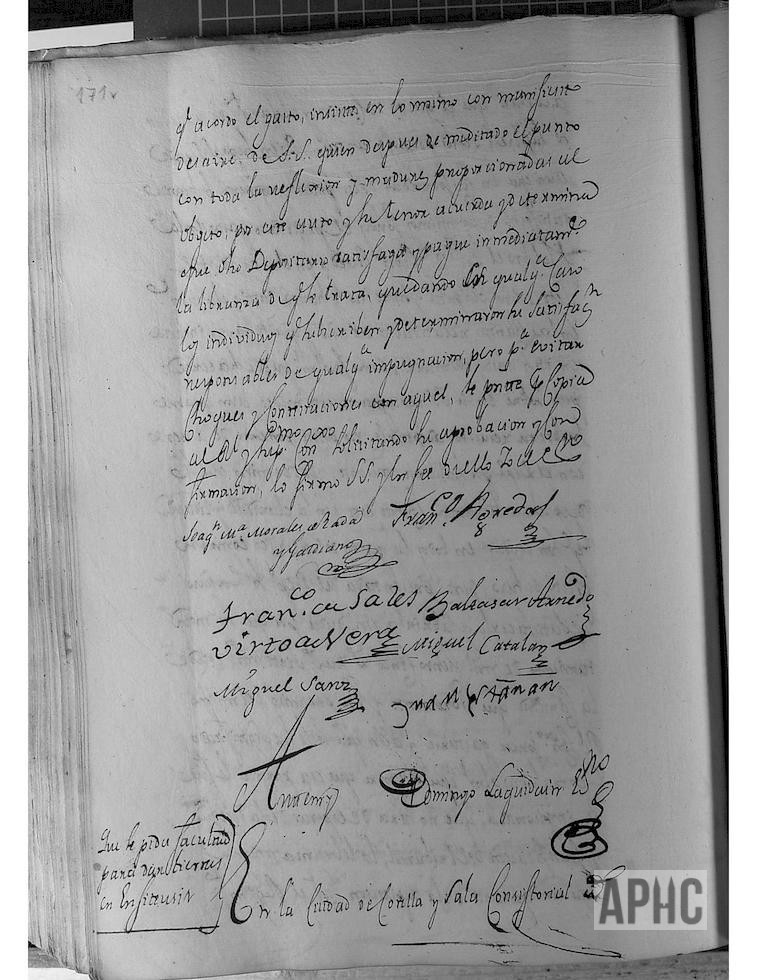 171v
qe acordo el gasto, insiste en lo mismo con manifiesto
desaire de S.S. quien despues de meditado el punto
con toda la reflexion y madurez proporcionadas al
obgeto, por este auto y su tenor acuerda y determina
que dho Depositario satisfaga y pague inmediatamte
la libranza de qe se trata, quedando en qualqa. Caso
los individuos qe subscriben y determinaron su satisfazn
responsables de qualqa impugnacion, pero pa. evitar
Choques y Contestaciones con aquel, se pase Copia
al Rl y Supmo Conxo solicitando su aprobacion y Con
firmacion, lo firmo SS. y en fee de ello Yo el Esno
Joaqn Ma. Morales de Rada Franco. Agreda
y Gardiano
Franco de Sales Balzasar Arnedo
Virto de Vera Miguel Catalan
Miguel Sanz Juan
Antemi Domingo Laquiduin Esno
Que se pida facultad
para dar tierras
en Enfiteusis
En la Ciudad de Corella y Sala Consistorial
APHC